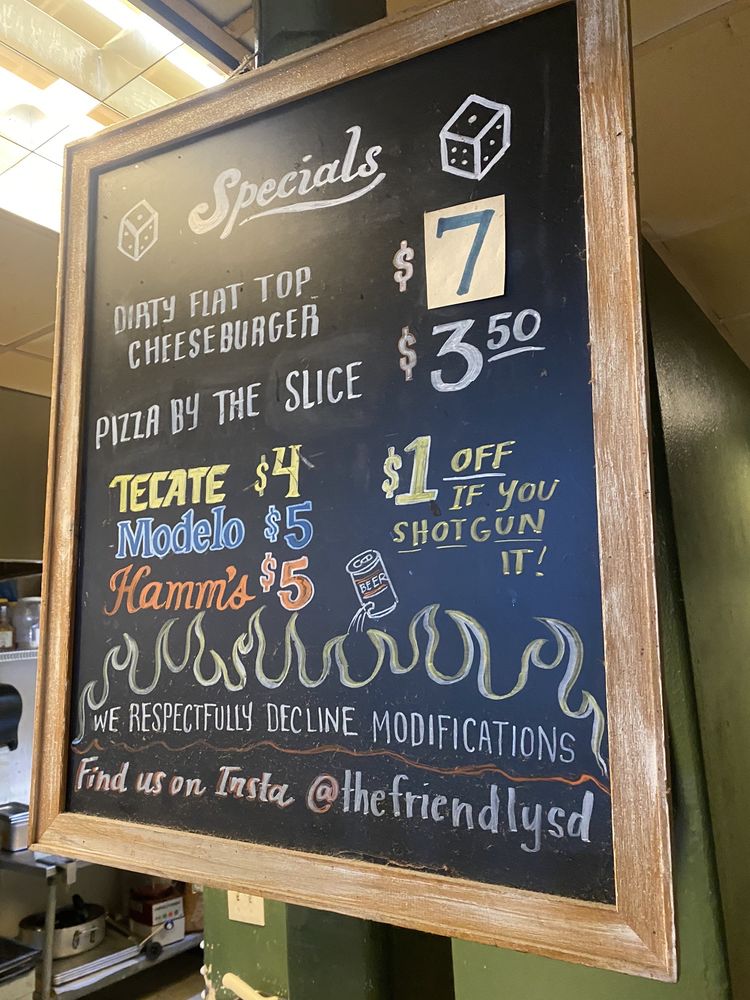 Specials
DIRTY FLAT TOP $ 7
CHEESEBURGER
PIZZA BY THE SLICE $ 3 50
TECATE $4
Modelo $5
Hamm's $5
$1 OFF
IF YOU
SHOTGUN
IT!
BEER
WE RESPECTFULLY DECLINE MODIFICATIONS
Find us on Insta @thefriendlysd